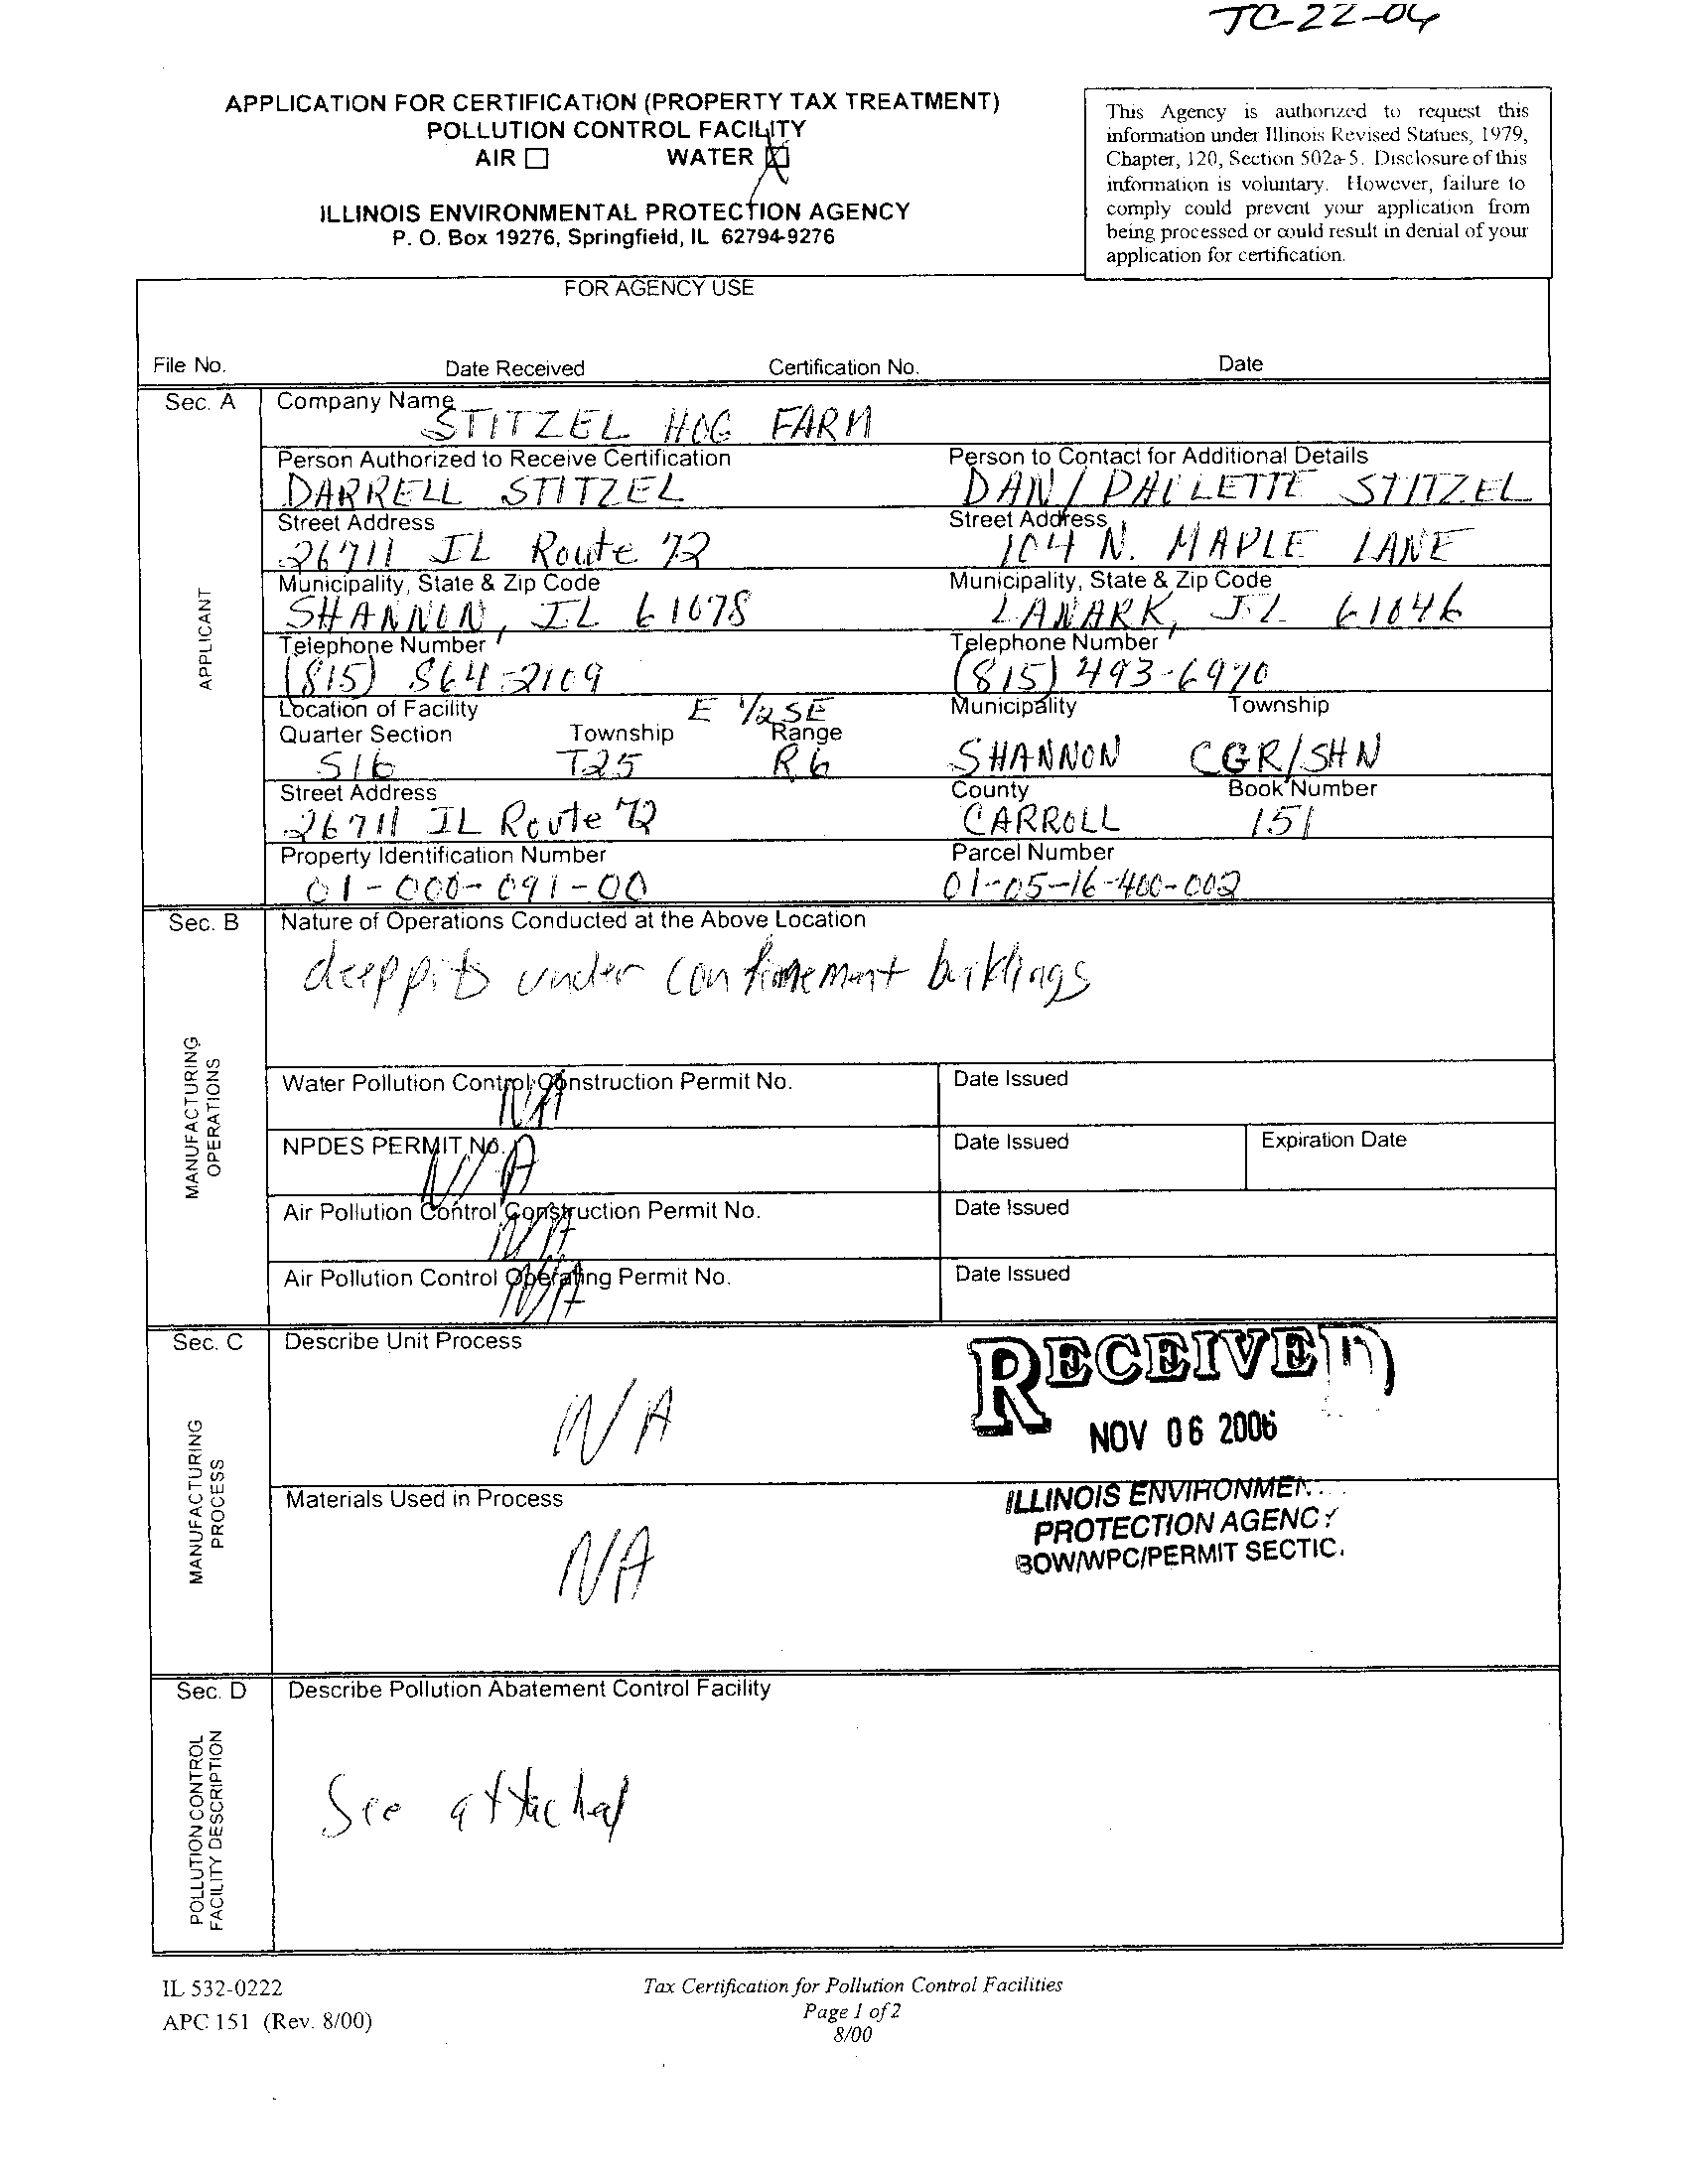 TC-22-06
APPLICATION FOR CERTIFICATION (PROPERTY TAX TREATMENT)
POLLUTION CONTROL FACILITY
AIR ☐ WATER ☒
ILLINOIS ENVIRONMENTAL PROTECTION AGENCY
P. O. Box 19276, Springfield, IL 62794-9276
This Agency is authorized to request this
information under Illinois Revised Statues, 1979,
Chapter, 120, Section 502a-5. Disclosure of this
information is voluntary. However, failure to
comply could prevent your application from
being processed or could result in denial of your
application for certification.
FOR AGENCY USE
File No. Date Received Certification No. Date
Sec. A Company Name
STITZEL HOG FARM
Person Authorized to Receive Certification Person to Contact for Additional Details
DARRELL STITZEL DAN / PAULETTE STITZEL
Street Address Street Address
26711 IL Route 72 104 N. MAPLE LANE
Municipality, State & Zip Code Municipality, State & Zip Code
SHANNON, IL 61078 LANARK, IL 61046
Telephone Number Telephone Number
(815) 864-2109 (815) 493-6970
APPLICANT
Location of Facility E 1/2 SE Municipality Township
Quarter Section Township Range
S16 T25 R6 SHANNON CGR/SHN
Street Address County Book Number
26711 IL Route 72 CARROLL 151
Property Identification Number Parcel Number
01-000-091-00 01-05-16-400-002
Sec. B Nature of Operations Conducted at the Above Location
deep pits under confinement buildings
MANUFACTURING
OPERATIONS
Water Pollution Control Construction Permit No. Date Issued
N/A
NPDES PERMIT NO. Date Issued Expiration Date
N/A
Air Pollution Control Construction Permit No. Date Issued
N/A
Air Pollution Control Operating Permit No. Date Issued
N/A
Sec. C Describe Unit Process
N/A
RECEIVED
NOV 06 2006
MANUFACTURING
PROCESS
Materials Used in Process
N/A
ILLINOIS ENVIRONMEN
PROTECTION AGENCY
BOW/WPC/PERMIT SECTIC.
Sec. D Describe Pollution Abatement Control Facility
POLLUTION CONTROL
FACILITY DESCRIPTION
See attached
IL 532-0222 Tax Certification for Pollution Control Facilities
APC 151 (Rev. 8/00) Page 1 of 2
8/00